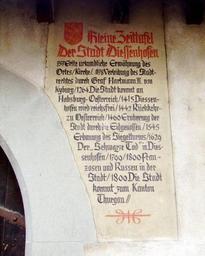 Kleine Zeittafel
Der Stadt Diessenhofen
757 Erste urkundliche Erwähnung des
Ortes/Kirche/1178 Verleihung des Stadt-
rechtes durch Graf Hartmann III. von
Kyburg/1264 Die Stadt kommt an
Habsburg-Oesterreich/1415 Diessen-
hofen wird reichsfrei/1442 Rückkehr
zu Oesterreich/1460 Eroberung der
Stadt durch die Eidgenossen/1545
Erbauung des Siegelturms/1629
Der „Schwarze Tod" in Dies-
senhofen/1799/1800 Fran-
zosen und Russen in der
Stadt/1800 Die Stadt
kommt zum Kanton
Thurgau